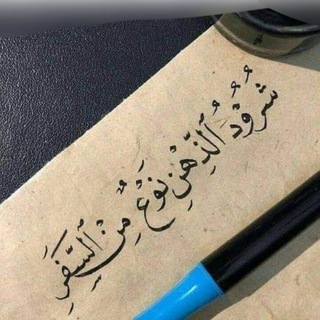 شُرُودُ الذِّهْنِ نَوْعٌ مِنَ السَّفَرِ